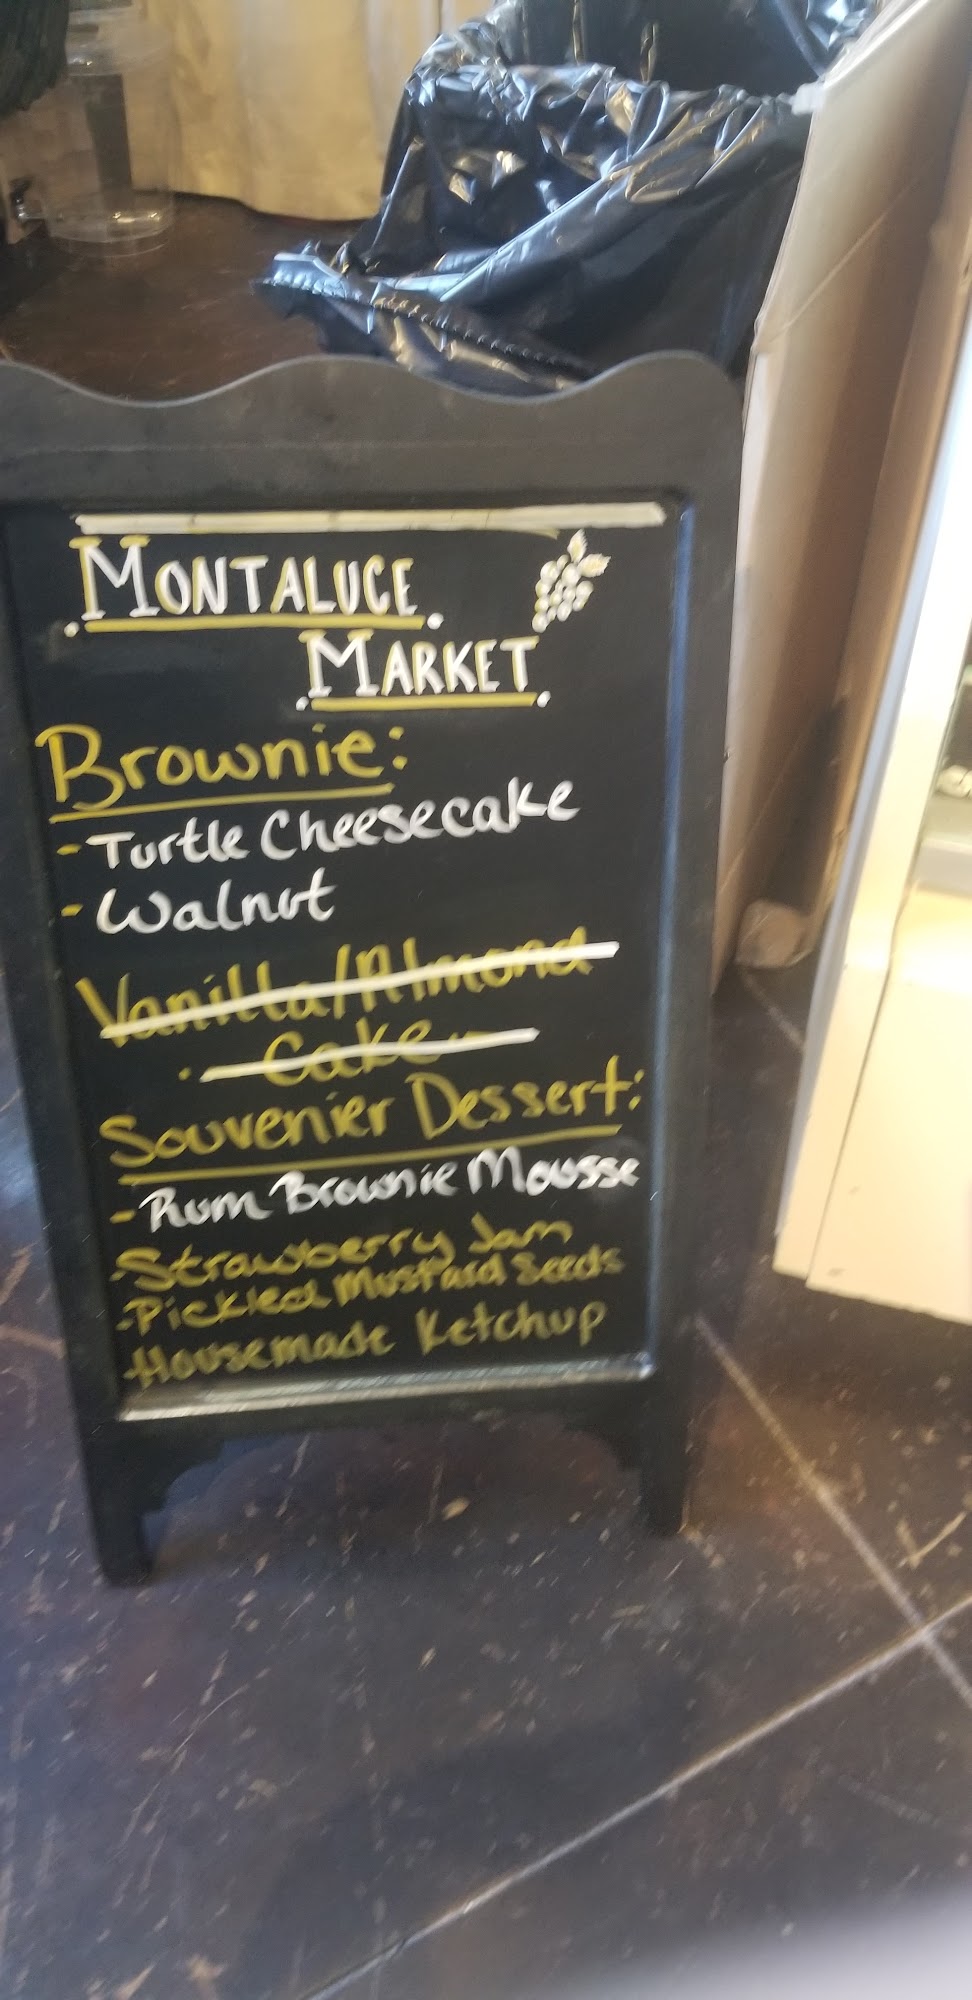 MONTALUCE
MARKET
Brownie:
- Turtle Cheesecake
- Walnut
Vanilla/Almond
Cake
Souvenier Dessert:
- Rum Brownie Mousse
-Strawberry Jam
-Pickled Mustard Seeds
-Housemade Ketchup